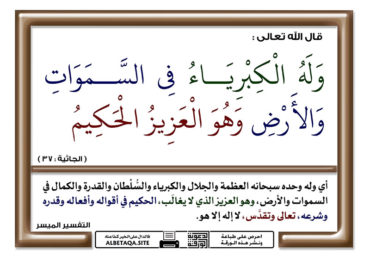 قال الله تعالى :
وَلَهُ الْكِبْرِيَاءُ فِي السَّمَوَاتِ
وَالْأَرْضِ وَهُوَ الْعَزِيزُ الْحَكِيمُ
( الجاثية : ٣٧ )
أي وله وحده سبحانه العظمة والجلال والكبرياء والسُّلطان والقدرة والكمال في
السموات والأرض، وهو العزيز الذي لا يغالَب، الحكيم في أقواله وأفعاله وقدره
وشرعه، تعالى وتقدَّس، لا إله إلا هو.
التفسير الميسر
ALBETAQA.SITE
احرص على طباعة
ونشر هذه الورقة